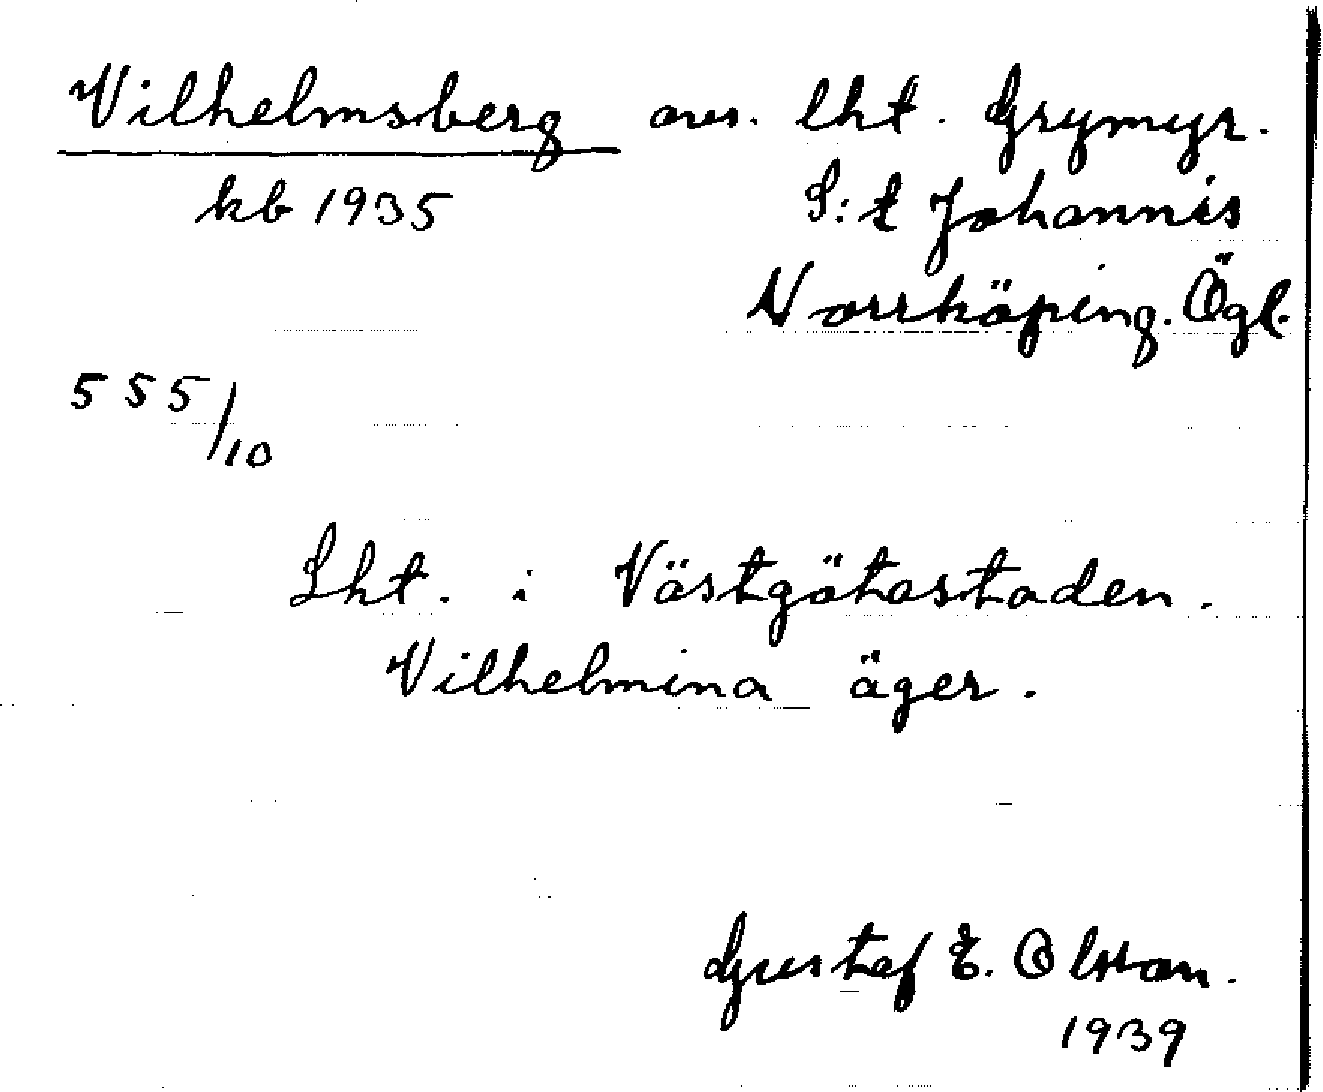 Vilhelmsberg avs. lht. Grymyr.
kb 1935 S:t Johannis
Norrköping. Ögl.
555/10
Lht. i Västgötastaden.
Vilhelmina äger.
Gustaf E. Olsson.
1939